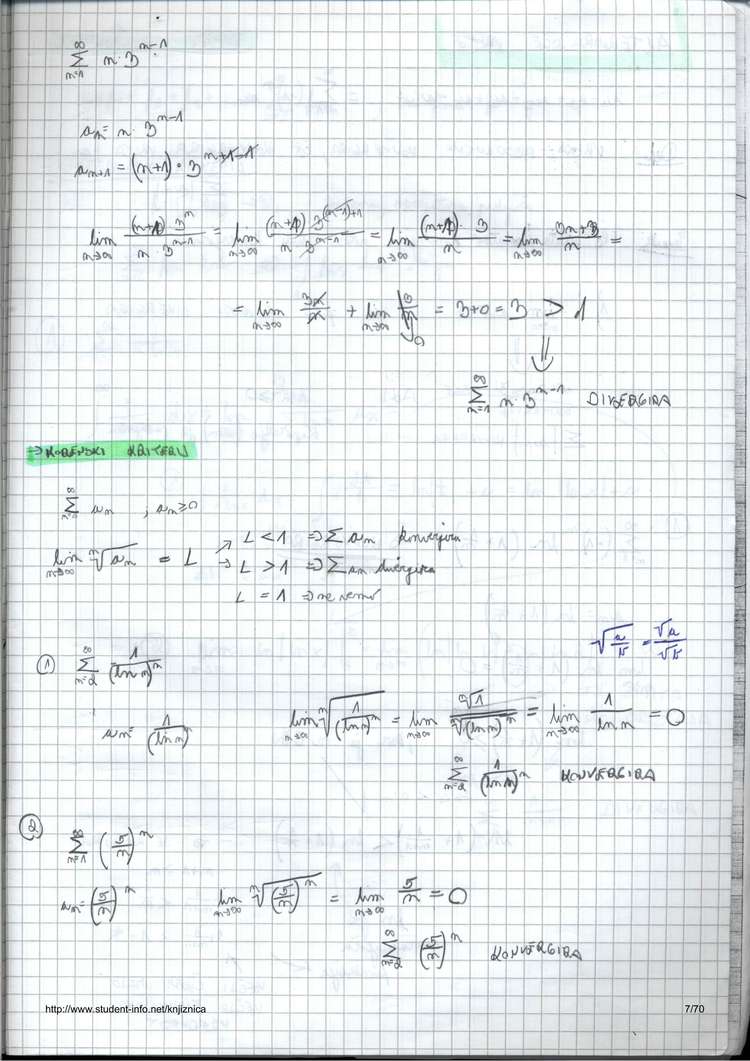 ∞∑n=1 n·3^(n-1)
an = n·3^(n-1)
an+1 = (n+1)·3^(n+1-1)
lim n→∞ (n+1)3^n / n·3^(n-1) = lim n→∞ (n+1)3^((n-1)+1) / n 3^(n-1) = lim n→∞ (n+1)·3 / n = lim n→∞ 3n+3 / n =
= lim n→∞ 3n/n + lim n→∞ 3/n 0 = 3+0 = 3 > 1
⇓
∞∑n=1 n·3^(n-1) DIVERGIRA
→ KORENSKI KRITERIJ
∞∑ an ; an ≥ 0
L < 1 ⇒ ∑ an konvergira
lim n→∞ n√an = L → L > 1 ⇒ ∑ an divergira
L = 1 ⇒ ne vemo
√(a/b) = √a/√b
① ∞∑n=2 1/(ln n)^n
an = 1/(ln n)^n lim n→∞ n√(1/(ln n)^n) = lim n→∞ n√1 / n√((ln n)^n) = lim n→∞ 1/ln n = 0
∞∑n=2 1/(ln n)^n KONVERGIRA
② ∞∑n=1 (5/n)^n
an = (5/n)^n lim n→∞ n√((5/n)^n) = lim n→∞ 5/n = 0
∞∑n=2 (5/n)^n KONVERGIRA
http://www.student-info.net/knjiznica 7/70